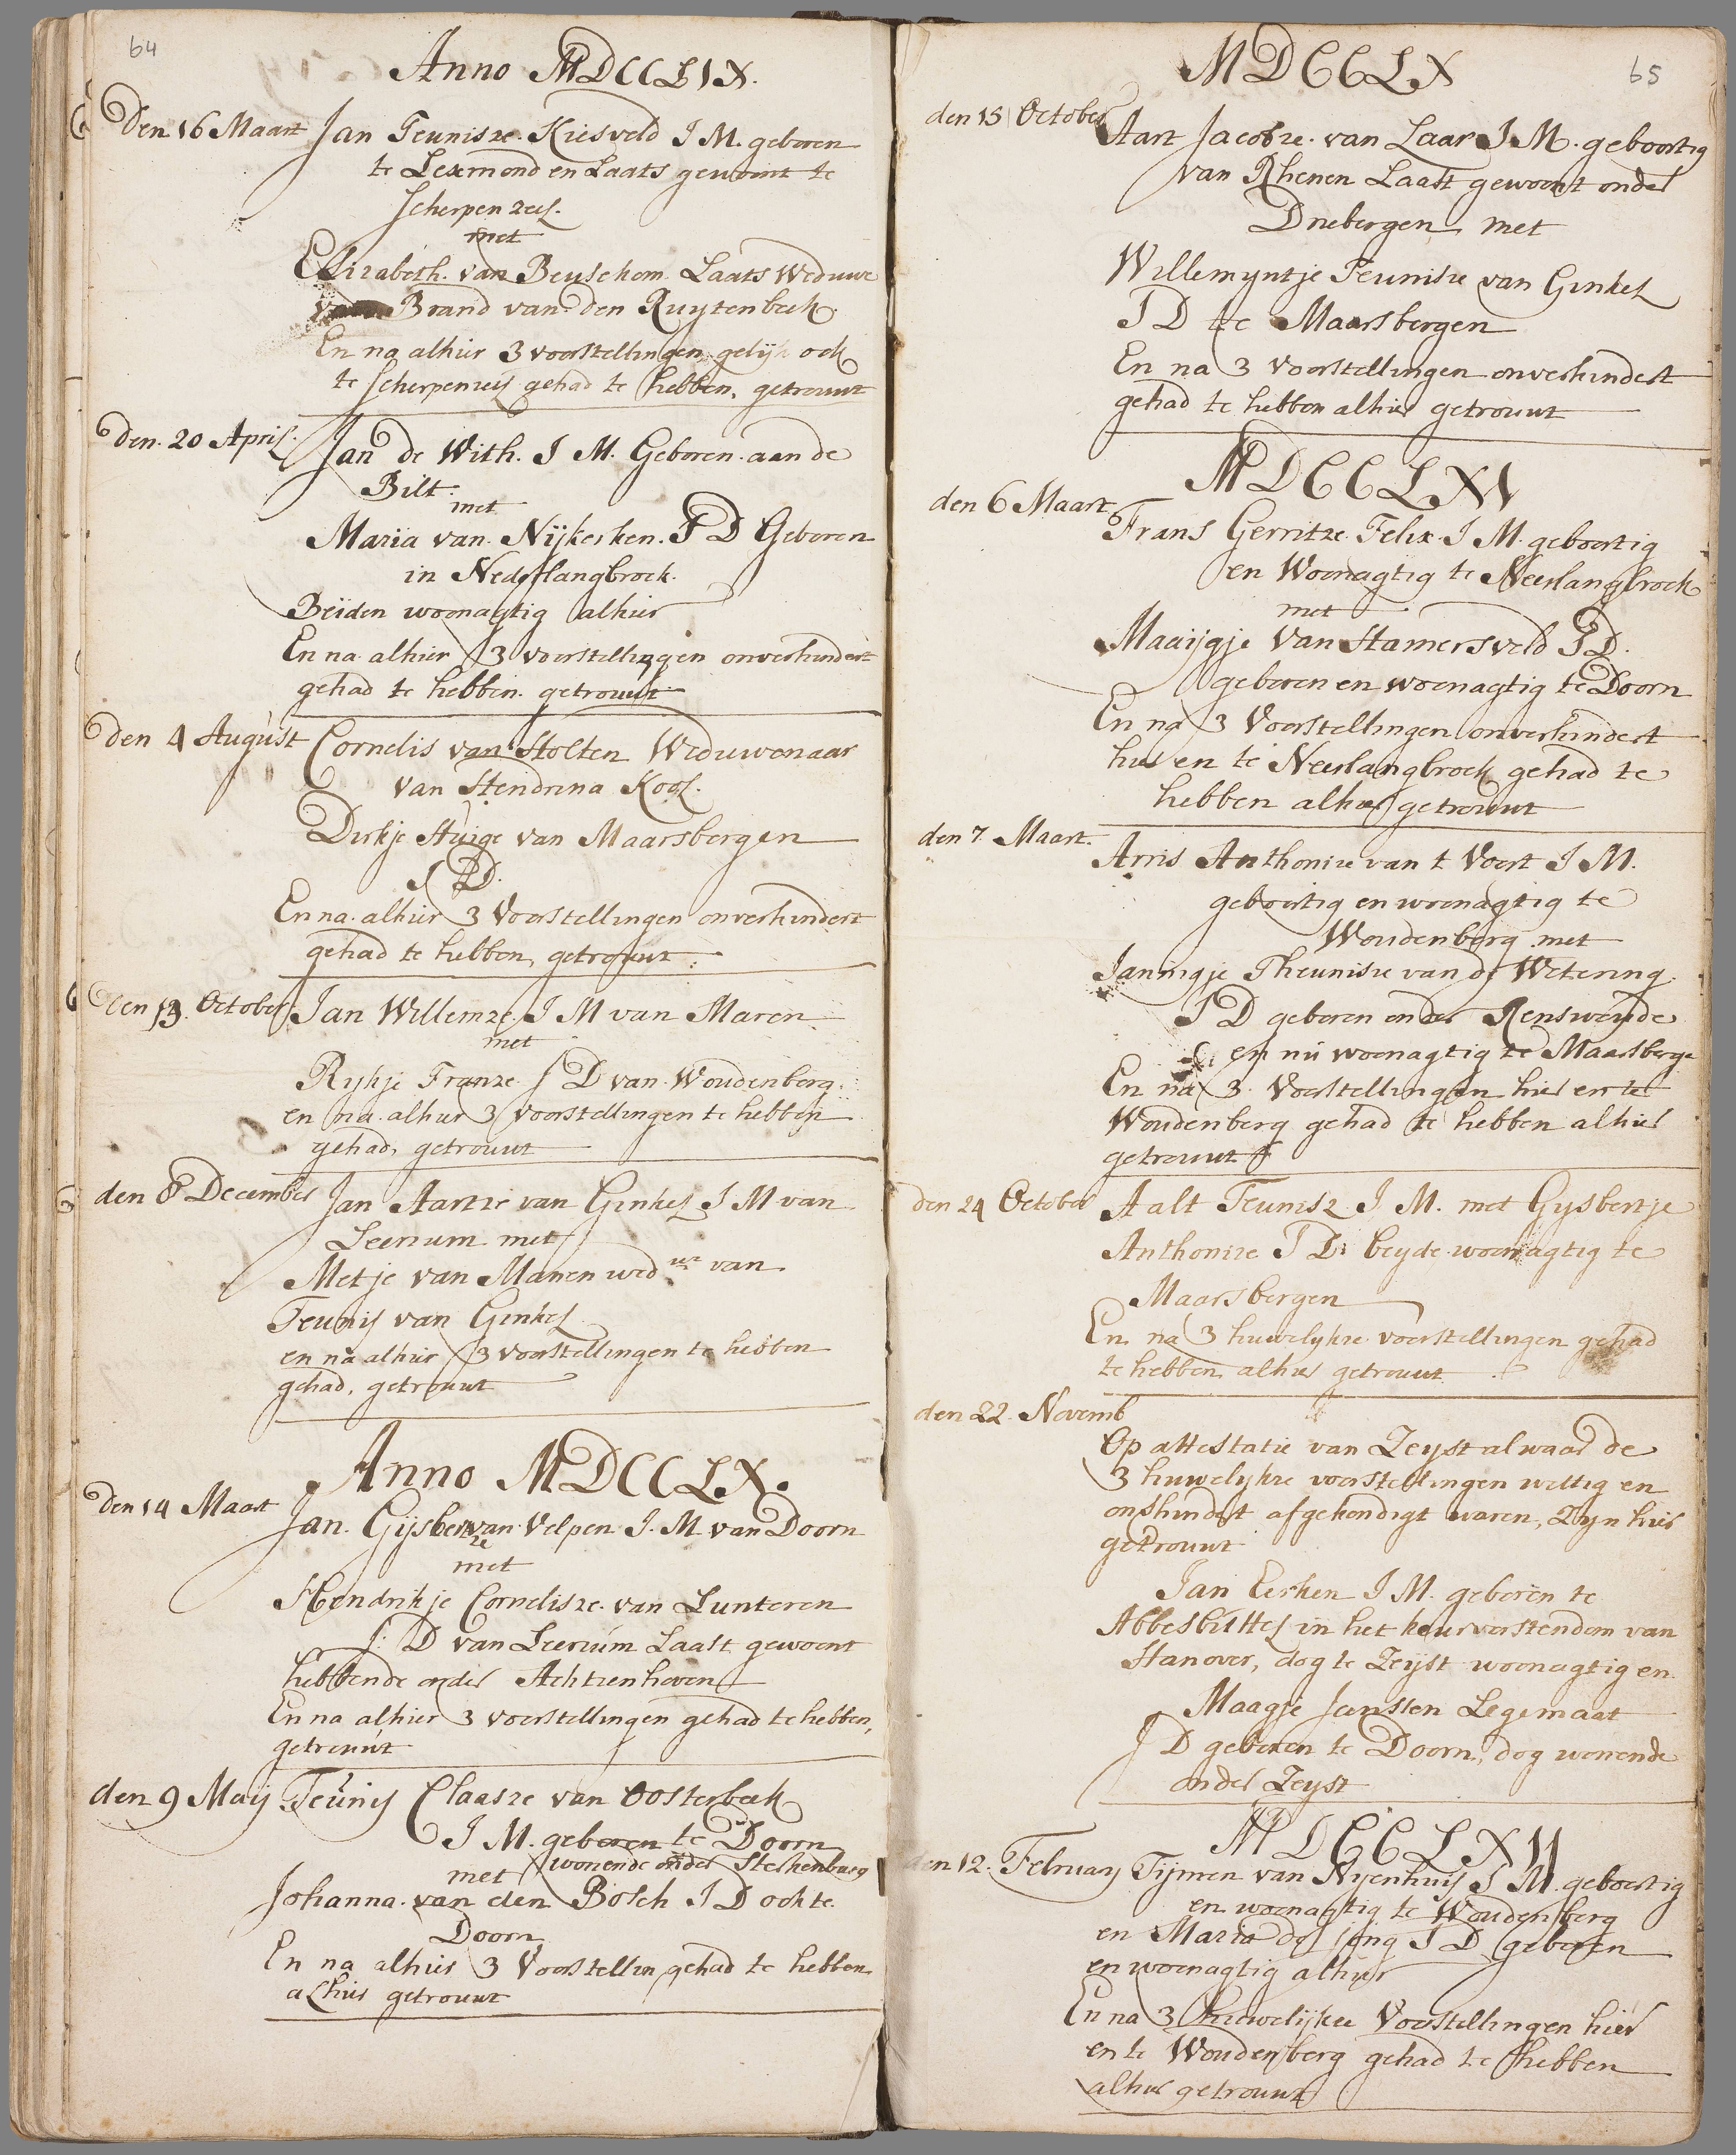 64
Anno MDCCLIX.
Den 16 Maart Jan Teunisze. Kiesveld J M. geboren
te Lexmond en Laats gewoont te
Scherpenzeel.
met
Elizabeth. van Beusekom. Laats Weduwe
van Brand van den Ruytenbeek.
En na alhier 3 voorstellingen gelijk ook
te Scherpenzeel gehad te hebben, getrouwt
den. 20 April. Jan de With. J M. Geboren. aan de
Bilt.
met
Maria van. Nijkerken. J D Geboren
in Nederlangbroek.
Beiden woonagtig alhier
En na. alhier 3 voorstellingen onverhindert
gehad te hebben. getrouwt
den 4 August Cornelis van Holten Weduwenaar
van Hendrina Kool.
Dirkje Huige van Maarsbergen
J D.
En na. alhier 3 Voorstellingen onverhindert
gehad te hebben, getrouwt.
den 13. October Jan Willemze. J M van Maren
met
Rykje Franze. J D van. Woudenberg.
en na. alhier 3 voorstellingen te hebben
gehad, getrouwt
den 8 December Jan Aartze van Ginkel J M van
Leersum met
Metje van Manen wed.we van
Teunis van Ginkel
en na alhier 3 voorstellingen te hebben
gehad, getrouwt
Anno MDCCLX.
den 14 Maart Jan. Gijsbertze van Velpen J. M. van Doorn
met
Hendrikje Cornelisze. van Lunteren
J: D van Leersum Laast gewoont
hebbende onder Achtienhoven
En na alhier 3 voorstellingen gehad te hebben,
getrouwt
den 9 Maij Teunis Claasze van Oosterbeek
J M. geboren te Doorn
wonende onder Sterkenburg
met
Johanna. van den Bosch J D ook te
Doorn
En na alhier 3 Voorstellin gehad te hebben
alhier getrouwt
MDCCLX
65
den 15 October Aart Jacobze. van Laar J M. geboortig
van Rhenen Laast gewoont onder
Driebergen met
Willemyntje Teunisze van Ginkel
J D te Maarsbergen
En na 3 Voorstellingen onverhindert
gehad te hebben alhier getrouwt
MDCCLXI
den 6 Maart. Frans Gerritze. Felix. J M. geboortig
en Woonagtig te Neerlangbroek
met
Maaijgje Van Hamersveld J D.
geboren en woonagtig te Doorn
En na 3 Voorstellingen onverhindert
hier en te Neerlangbroek gehad te
hebben alhier getrouwt
den 7 Maart. Arris Anthonize van t Voort J M.
geboortig en woonagtig te
Woudenberg met
Janingje Theunisze van de Wetering.
J D geboren onder Renswoude
en nu woonagtig te Maarsberge
En na 3. Voorstellingen hier en te
Woudenberg gehad te hebben alhier
getrouwt
den 24 October Aalt Teunisz. J M. met Gysbertje
Anthonize J D. beyde woonagtig te
Maarsbergen
En na 3 huwelykze voorstellingen gehad
te hebben alhier getrouwt.
den 22. Novemb
Op attestatie van Zeyst alwaar de
3 huwelykze voorstellingen wettig en
onverhindert afgekondigt waren, Zyn hier
getrouwt
Jan Eerken J M. geboren te
Abbesbuttel in het keurvorstendom van
Hanover, dog te Zeijst woonagtig en
Maagje Janssen Legemaat
J D geboren te Doorn, dog wonende
onder Zeyst
MDCCLXII
den 12. February Tijmen van Nyenhuis J M. geboortig
en woonagtig te Woudenberg
en Maria de jong J D geboren
en woonagtig alhier
En na 3 Huwelijkze Voorstellingen hier
en te Woudenberg gehad te hebben
alhier getrouwt